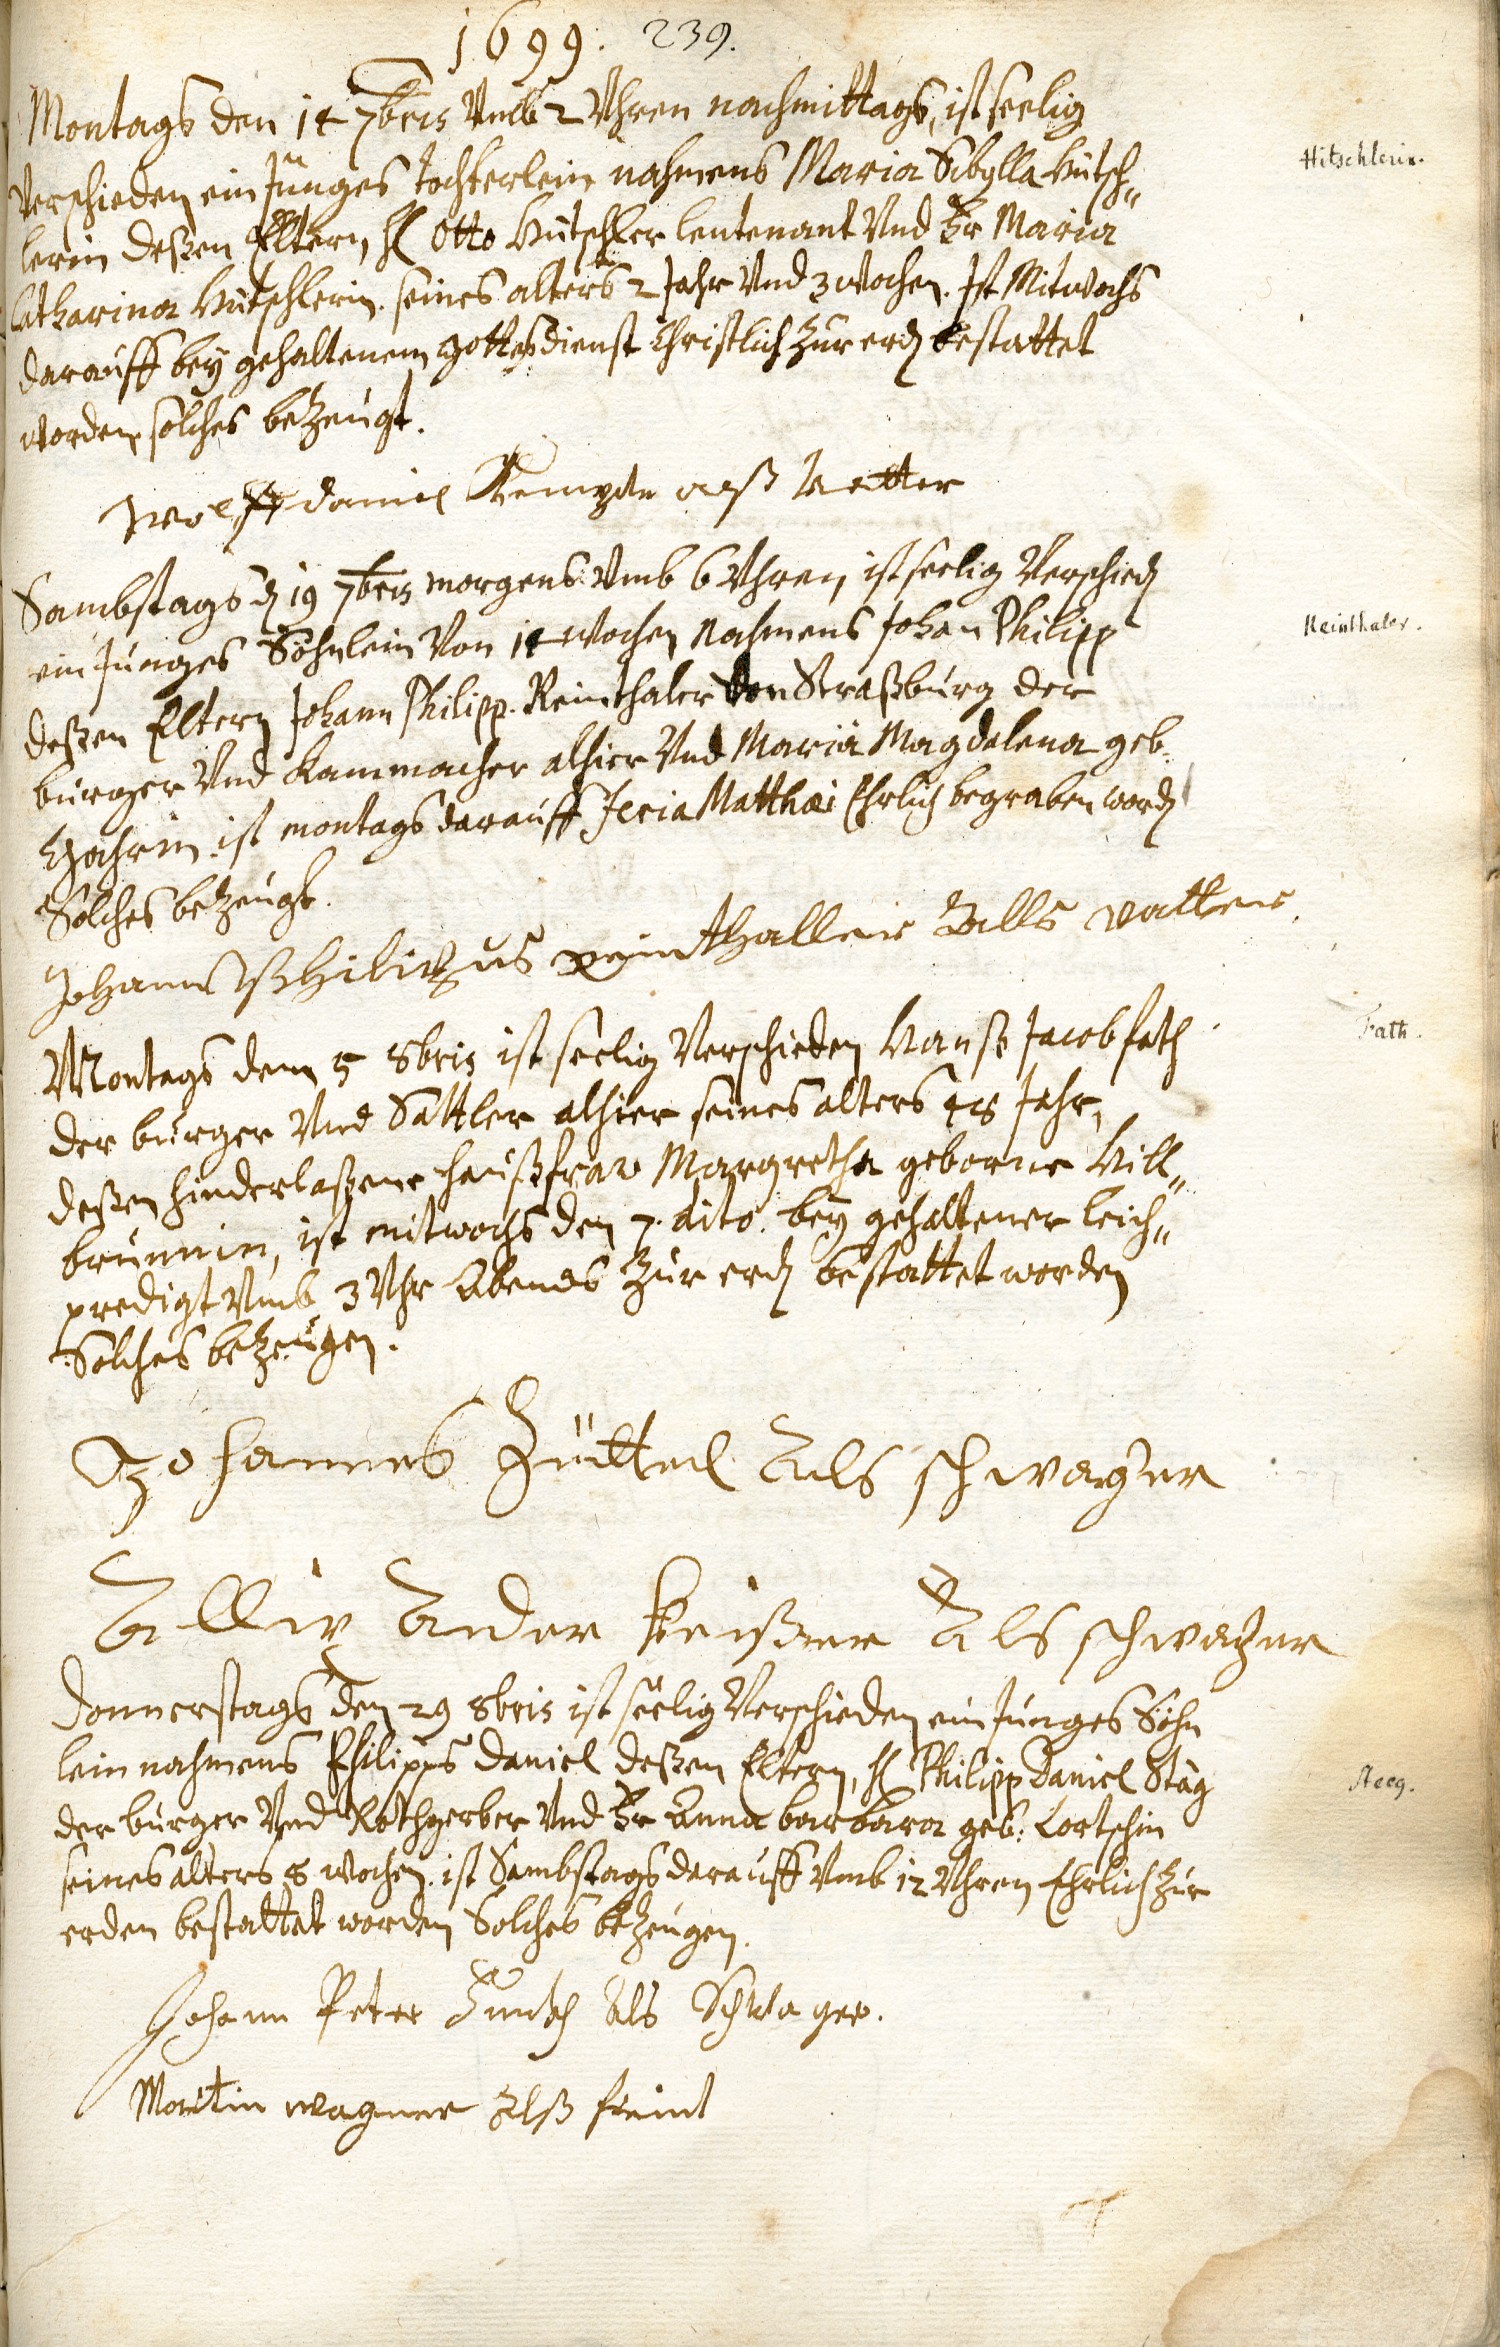 1699. 239.
Montags den 14 7bris Vmb 2 Vhren nachmittags, ist seelig
Verschieden ein Junges tochterlein nahmens Maria Sibylla Hütsch„
Hitschlerin.
lerin deßen Eltern, H Otto Hütschler leutenant Vnd Fr Maria
Catharina Hütschlerin. seines alters 2 Jahr Vnd 3 wochen. Ist Mitwochs
darauff bey gehaltenem gottesdienst Christlich zur erd bestattet
worden, solches bezeugt.
Wolff daniel als Vatter
Sambstags d 19 7bris morgens Vmb 6 Vhren, ist seelig Verschied
ein Junges Söhnlein Von 14 wochen Nahmens Johan Philipp
Reinthaler.
deßen Eltern Johann Philipp Reinthaler Von Straßburg der
burger Vnd Kammacher alhier Vnd Maria Magdalena geb.
ist montags darauff Feria Matthæi Ehrlich begraben word
Solches bezeugt.
Johann Philippus reinthaller Alls vatter.
Montags den 5 8bris ist seelig Verschieden Hanß Jacob fath
Fath.
der burger Vnd Sattler alhier seines alters 48 Jahr,
deßen hinderlaßene haußfraw Margretha geborne Hill„
brunnin, ist mitwochs den 7. dito. bey gehaltener leich„
predigt Vmb 3 Vhr Abends zur erd bestattet worden
Solches bezeugen.
Johannes Züttel Als schwager
Ander Als schwager
Donnerstags den 29 8bris ist seelig Verschieden ein Junges Söhn
lein nahmens Philipps Daniel deßen Eltern, H Philipp Daniel Stäg
Steeg.
der burger Vnd Rothgerber Vnd Fr Anna barbara geb: Lortschin
seines alters 8 wochen. ist Sambstags darauff Vmb 12 Vhren Ehrlich zur
erden bestattet worden Solches bezeugen.
Johann Peter Als Schwager.
Martin wagner Alß freint